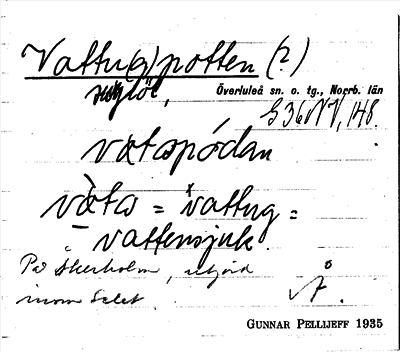 Vattu(g)potten (?)
Överluleå sn. o. tg., Norrb. län
G 36 NV, 148.
vatspódan
vàta = *vattug =
= vattensjuk.
På Åkerholm, utjord
inom Salet.
Å.
GUNNAR PELLIJEFF 1935